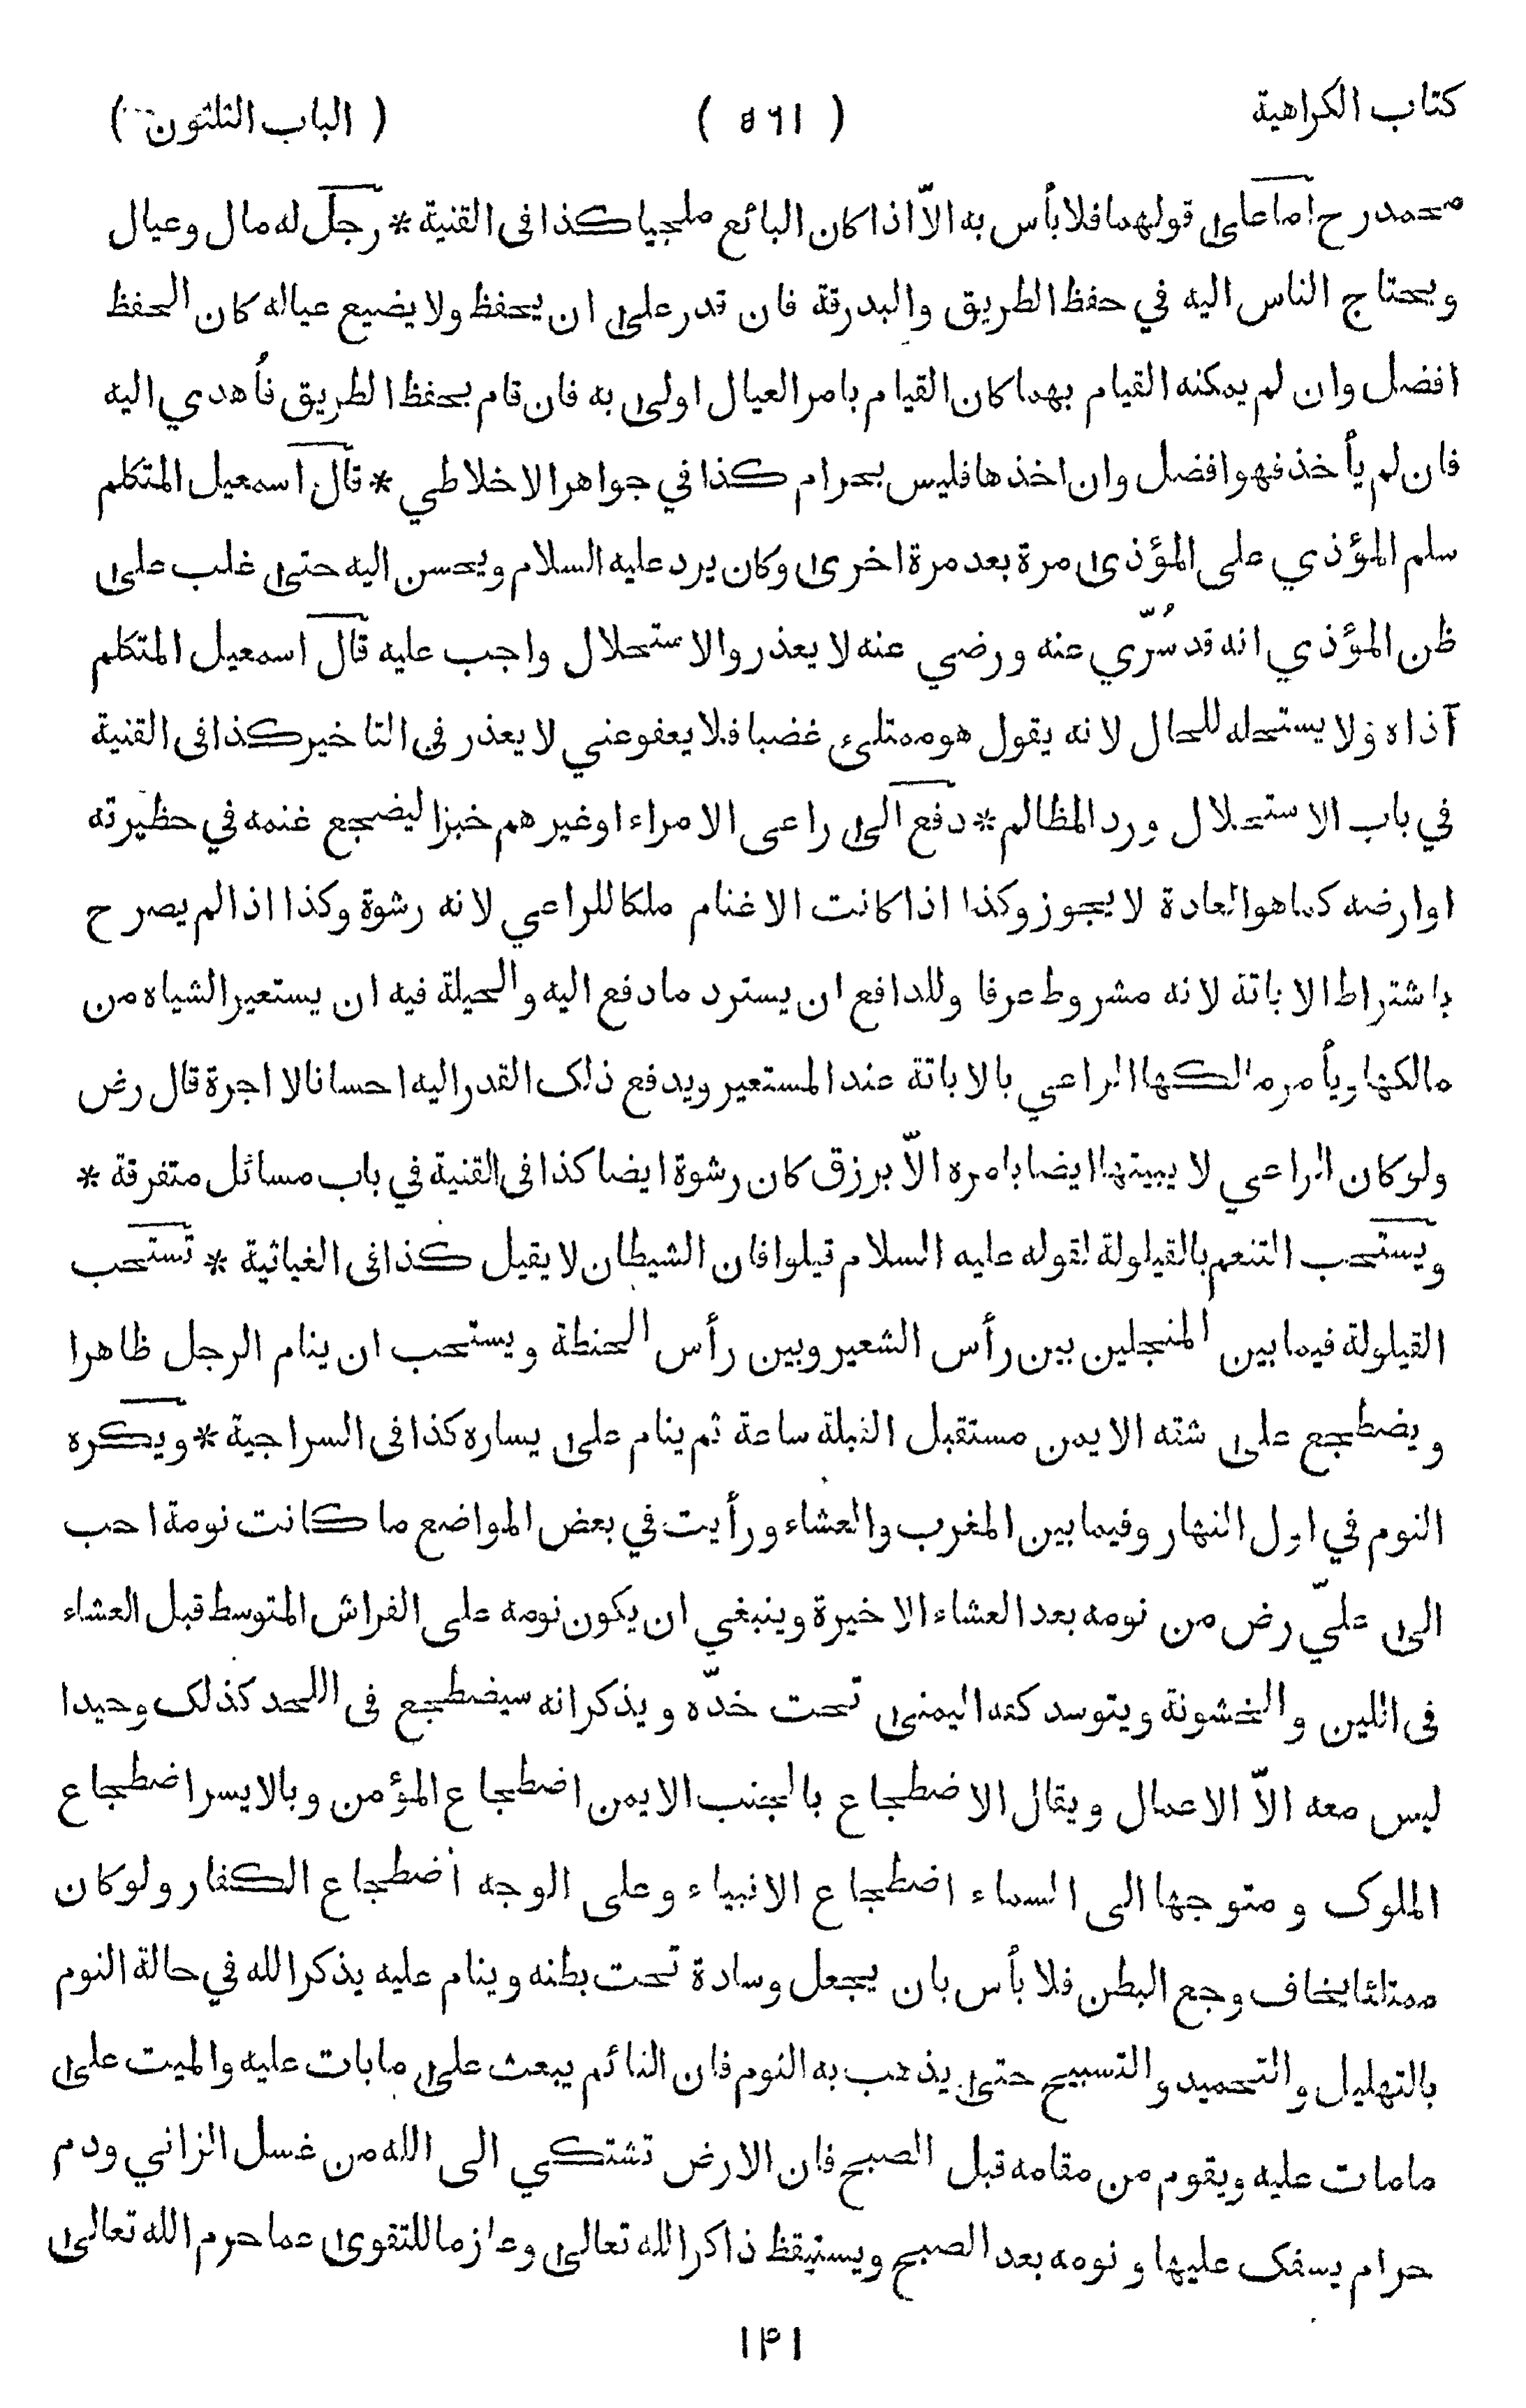 كتاب الكراهية ( ٥٦١ ) ( الباب الثلثون )
محمد رح اما على قولهما فلا بأس به الاّ اذا كان البائع ملجيا كذا فى القنية * رجل له مال وعيال
ويحتاج الناس اليه في حفظ الطريق والبدرقة فان قدر على ان يحفظ ولا يضيع عياله كان الحفظ
افضل وان لم يمكنه القيام بهما كان القيام بامر العيال اولى به فان قام بحفظ الطريق فأُهدي اليه
فان لم يأخذ فهو افضل وان اخذها فليس بحرام كذا في جواهر الاخلاطي * قال اسمعيل المتكلم
سلم المؤذي على المؤذى مرة بعد مرة اخرى وكان يرد عليه السلام ويحسن اليه حتى غلب على
ظن المؤذي انه قد سُرّي عنه ورضي عنه لا يعذر والاستحلال واجب عليه قال اسمعيل المتكلم
آذاه ولا يستحله للحال لانه يقول هو ممتلىء غضبا فلا يعفو عني لا يعذر في التاخير كذا فى القنية
في باب الاستحلال ورد المظالم * دفع الى راعى الامراء او غيرهم خبزا ليضجع غنمه في حظيرته
او ارضه كما هو العادة لا يجوز وكذا اذا كانت الاغنام ملكا للراعي لانه رشوة وكذا اذا لم يصرح
باشتراط الاباتة لانه مشروط عرفا وللدافع ان يسترد ما دفع اليه والحيلة فيه ان يستعير الشياه من
مالكها ويأمر مالكها الراعي بالاباتة عند المستعير ويدفع ذلک القدر اليه احسانا لا اجرة قال رض
ولو كان الراعي لا يبيتها ايضا بامره الاّ برزق كان رشوة ايضا كذا فى القنية في باب مسائل متفرقة *
ويستحب التنعم بالقيلولة لقوله عليه السلام قيلوا فان الشيطان لا يقيل كذا فى الغياثية * تستحب
القيلولة فيما بين المنجلين بين رأس الشعير وبين رأس الحنطة ويستحب ان ينام الرجل ظاهرا
ويضطجع على شقه الايمن مستقبل القبلة ساعة ثم ينام على يساره كذا فى السراجية * ويكره
النوم في اول النهار وفيما بين المغرب والعشاء ورأيت في بعض المواضع ما كانت نومة احب
الى عليّ رض من نومه بعد العشاء الاخيرة وينبغي ان يكون نومه على الفراش المتوسط قبل العشاء
فى اللين والخشونة ويتوسد كفه اليمنى تحت خدّه ويذكر انه سيضطجع فى اللحد كذلک وحيدا
ليس معه الاّ الاعمال ويقال الاضطجاع بالجنب الايمن اضطجاع المؤمن وبالايسر اضطجاع
الملوک و متوجها الى السماء اضطجاع الانبياء وعلى الوجه اضطجاع الكفار ولو كان
ممتلئا يخاف وجع البطن فلا بأس بان يجعل وسادة تحت بطنه وينام عليه يذكر الله في حالة النوم
بالتهليل والتحميد والتسبيح حتى يذهب به النوم فان النائم يبعث على ما بات عليه والميت على
ما مات عليه ويقوم من مقامه قبل الصبح فان الارض تشتكي الى الله من غسل الزاني ودم
حرام يسفک عليها و نومه بعد الصبح ويستيقظ ذاكرا لله تعالى وعازما للتقوى عما حرم الله تعالى
١٤١